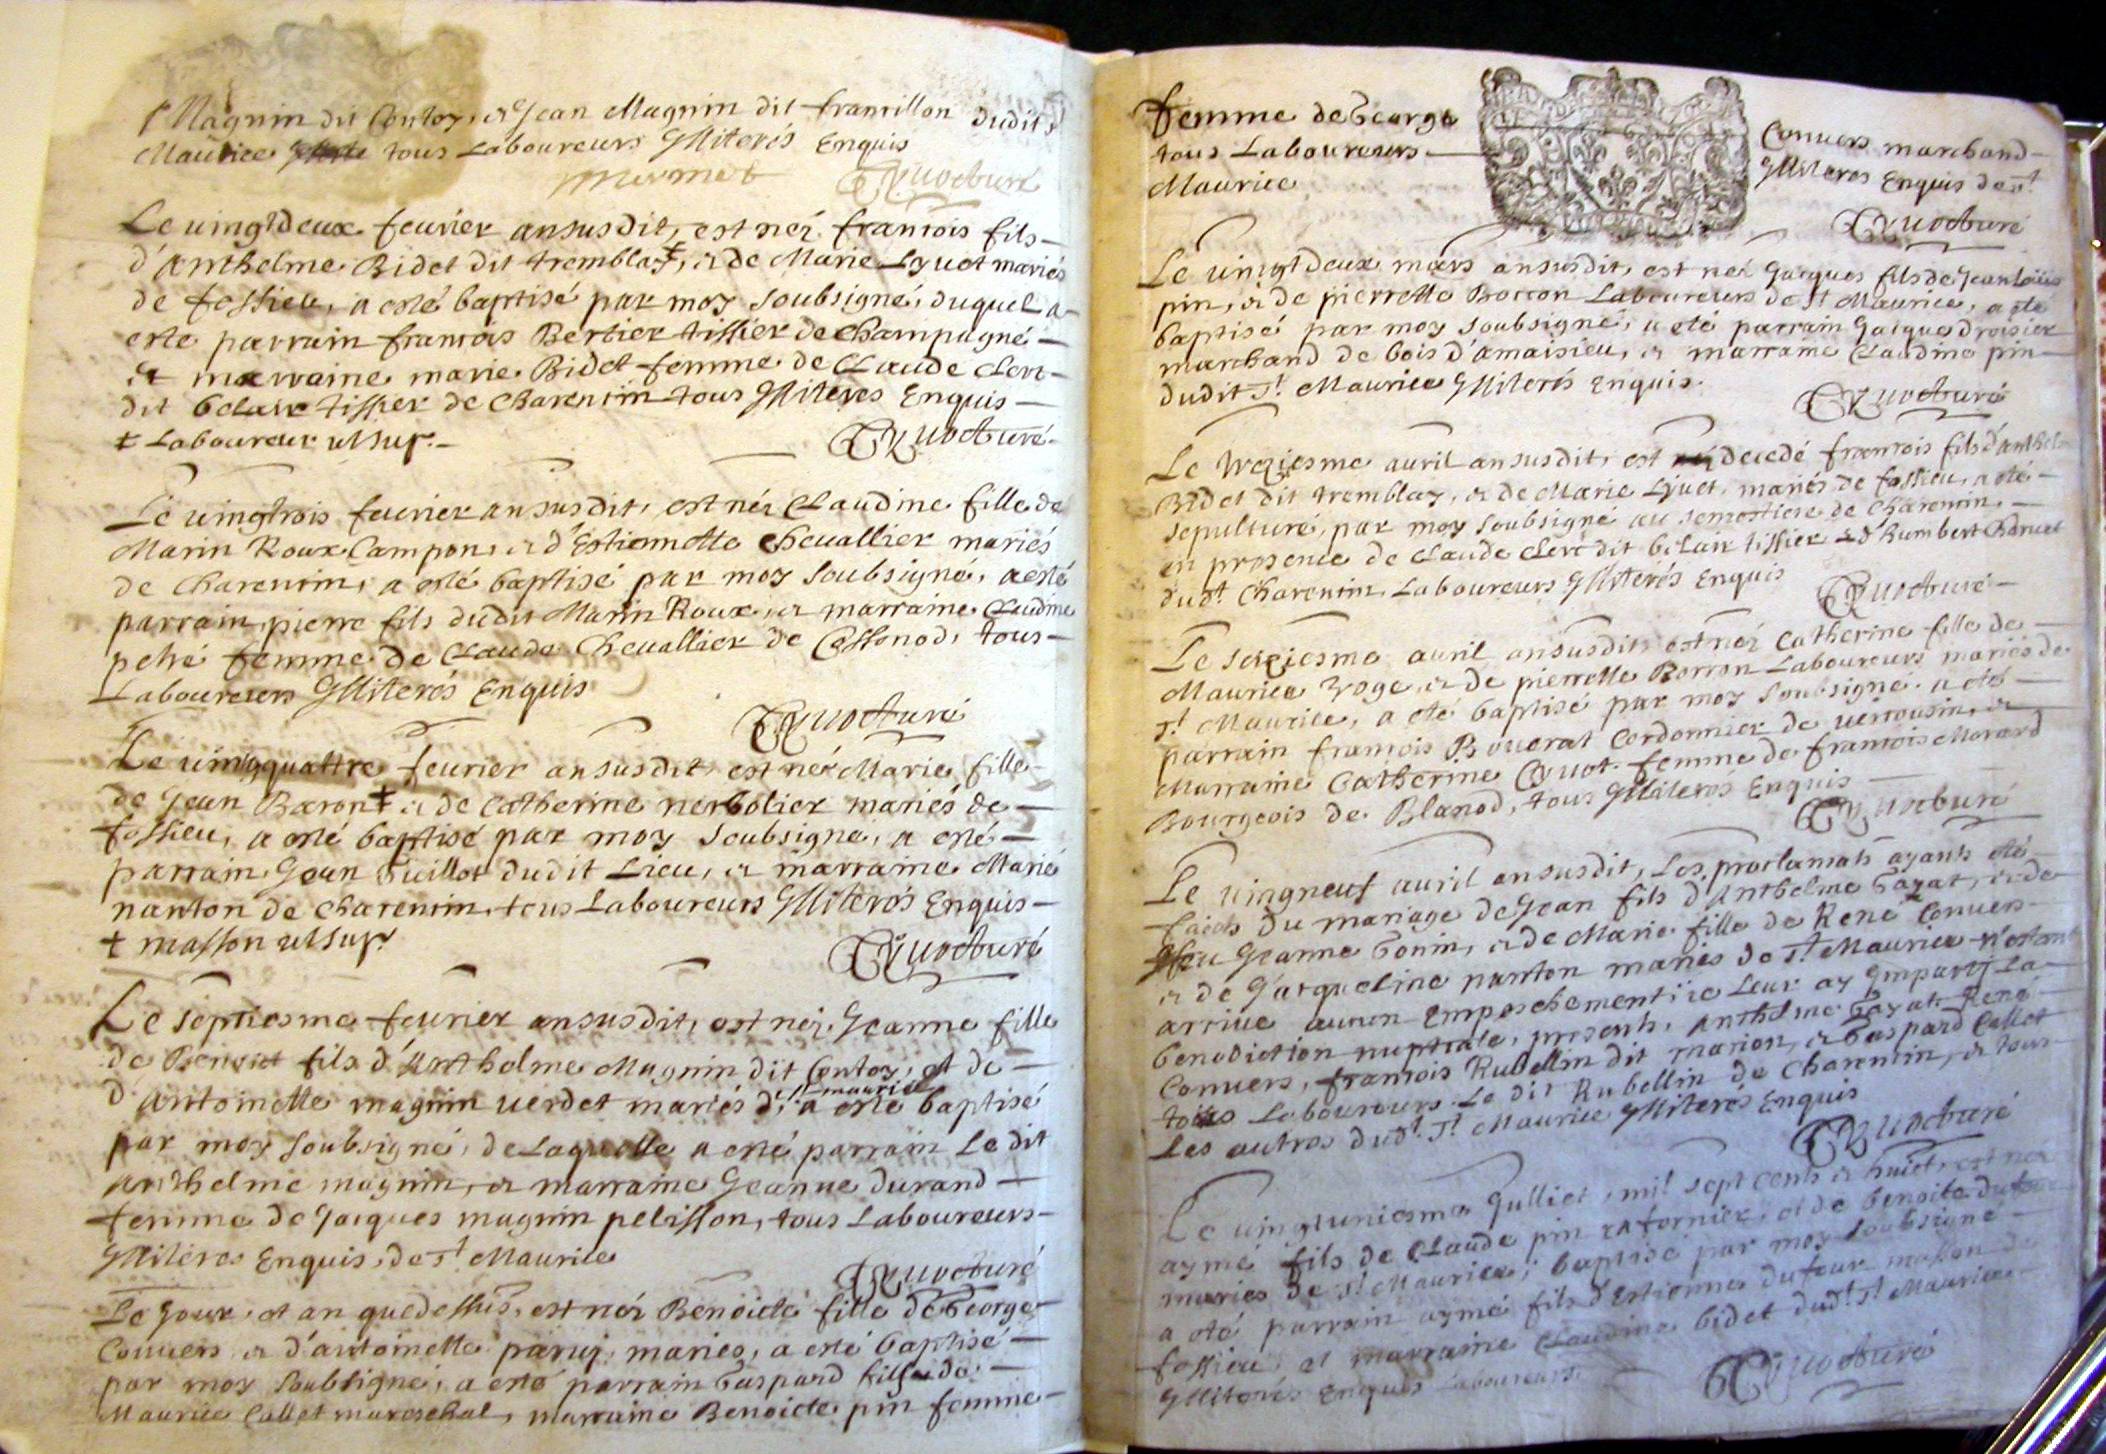 Magnin dit Contoz, & Jean Magnin dit francillon dudit
Maurice tous Laboureurs Jlliterés Enquis
mermet Cyuot curé
Le uingtdeux feurier ansusdit, est néi francois fils
d'Anthelme Bidet dit tremblaz ‡, & de Marie Lyuot mariés
de fossieu, a esté baptisé par moy soubsigné, duquel a
esté parrain francois Bertier tissier de Champagne
& marraine marie Bidet femme de Claude Clerc
dit belair tissier de Charencin tous Jlliteres Enquis
‡ Laboureur ut sup.
Cyuot curé
Le uingtrois feurier ansusdit, est néi Claudine fille de
Marin Roux Campon, & d'Estiennette Cheuallier mariés
de Charencin, a esté baptisé par moy soubsigné, a esté
parrain pierre fils dudit Marin Roux, & marraine Claudine
petré femme de Claude Cheuallier de Cossonod, tous
Laboureurs Jlliterés Enquis
Cyuot curé
Le uingquattre feurier ansusdit, est né Marie fille
de Jean Baron ‡ & de Catherine nerbolier mariés de
fossieu, a esté baptisé par moy soubsigné, a esté
parrain Jean Guillot dudit Lieu, & marraine Marie
nanton de Charencin, tous Laboureurs Jlliterés Enquis
‡ masson ut sup.
Cyuot curé
Le septiesme feurier ansusdit, est néi Jeanne fille
de Benoict fils d'Anthelme Magnin dit Contoz, et de
d'antoinette magnin uerdet mariés d. St maurice a esté baptisé
par moy soubsigné, de Laquelle a esté parrain Le dit
anthelme magnin, & marraine Jeanne durand
femme de Jacques magnin pelisson, tous Laboureurs
Jlliteres Enquis, de St Maurice
Cyuot curé
Le Jour et an que dessus, est néi Benoicte fille de George
Conuers & d'antoinette mariés, a esté baptisé
par moy soubsigné, a esté parrain Gaspard fils de
Maurice Callet mareschal, marraine Benoicte pin femme
femme de George Conuers marchand
tous Laboureurs Jlliteres Enquis de St
Maurice
Cyuot curé
Le uingtdeux mars ansusdit, est néi Jacques fils de Jean Loüis
pin, & de pierrette Borron Laboureurs de St Maurice, a été
baptisé par moy soubsigné, a été parrain Jacques Droisier
marchand de bois d'amaisieu, & marraine Claudine pin
dudit St Maurice Jlliterés Enquis.
Cyuot curé
Le treziesme auril ansusdit, est decedé francois fils d'anthelme
Bidet dit tremblaz, & de Marie Lyuet, mariés de fossieu, a été
sepulturé, par moy soubsigné au semestiere de Charencin,
en presence de Claude Clerc dit belair tissier & d'humbert
dudt Charencin Laboureurs Jlliterés Enquis
Cyuot curé
Le seiziesme auril ansusdit, est néi Catherine fille de
Maurice Yoge, & de pierrette Borron Laboureurs mariés de
St Maurice, a été baptisé par moy soubsigné, a été
parrain francois Bouerat Cordonnier de uirrousin, &
Marraine Catherine Cyuot femme de francois Morard
Bourgeois de Blanod, tous Jlliterés Enquis
Cyuot curé
Le uingneuf auril ansusdit, Les proclamats ayants été
faicts du mariage de Jean fils d'Anthelme Gayat, & de
feu Jeanne Gonin, & de Marie fille de René Conuers
& de Jacqueline nanton mariés de St Maurice n'estant
arriué aucun Empeschement ie Leur ay Jmparty La
benediction nuptiale, presents, Anthelme Gayat, René
Conuers, francois Rubellin dit marion, & Gaspard Callet
tous Laboureurs Le dit Rubellin de Charencin, & tous
Les autres dudt St Maurice Jlliterés Enquis
Cyuot curé
Le uingtuniesme Julliet, mil sept cents & huict, est néi
aymé fils de Claude pin rafornier, et de benoite dufour
mariés de St Maurice, baptisé par moy soubsigné
a été parrain aymé fils d'Estienne dufour masson de
fossieu, et marraine Claudine bidet dudt St Maurice
Jlliterés Enquis Laboureurs
Cyuot curé